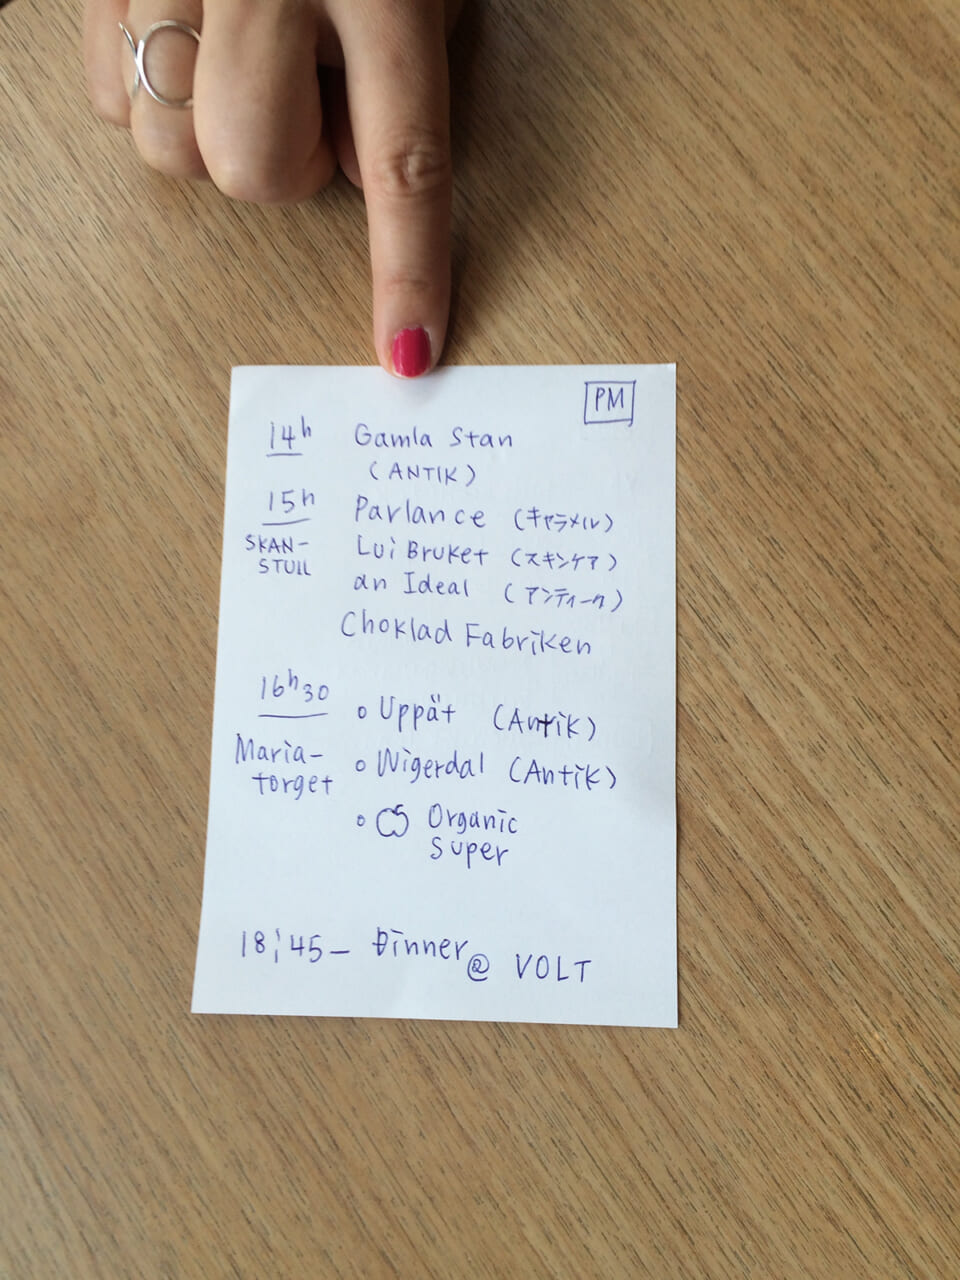 PM
14h Gamla Stan
(ANTIK)
15h Parlance (キャラメル)
SKAN-
STULL
Lui Bruket (スキンケア)
an Ideal (アンティーク)
Choklad Fabriken
16h30
Maria-
torget
o Uppåt (Antik)
o Wigerdal (Antik)
o Organic
Super
18:45 – Dinner @ VOLT